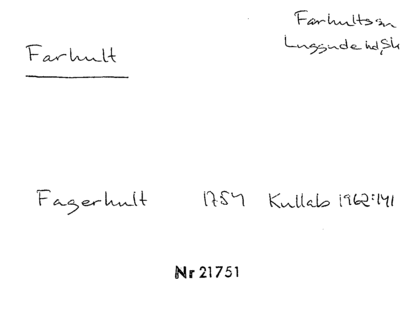 Farhults sn
Luggude hd, Sk
Farhult
Fagerhult 1754 Kullab 1962:141
Nr 21751